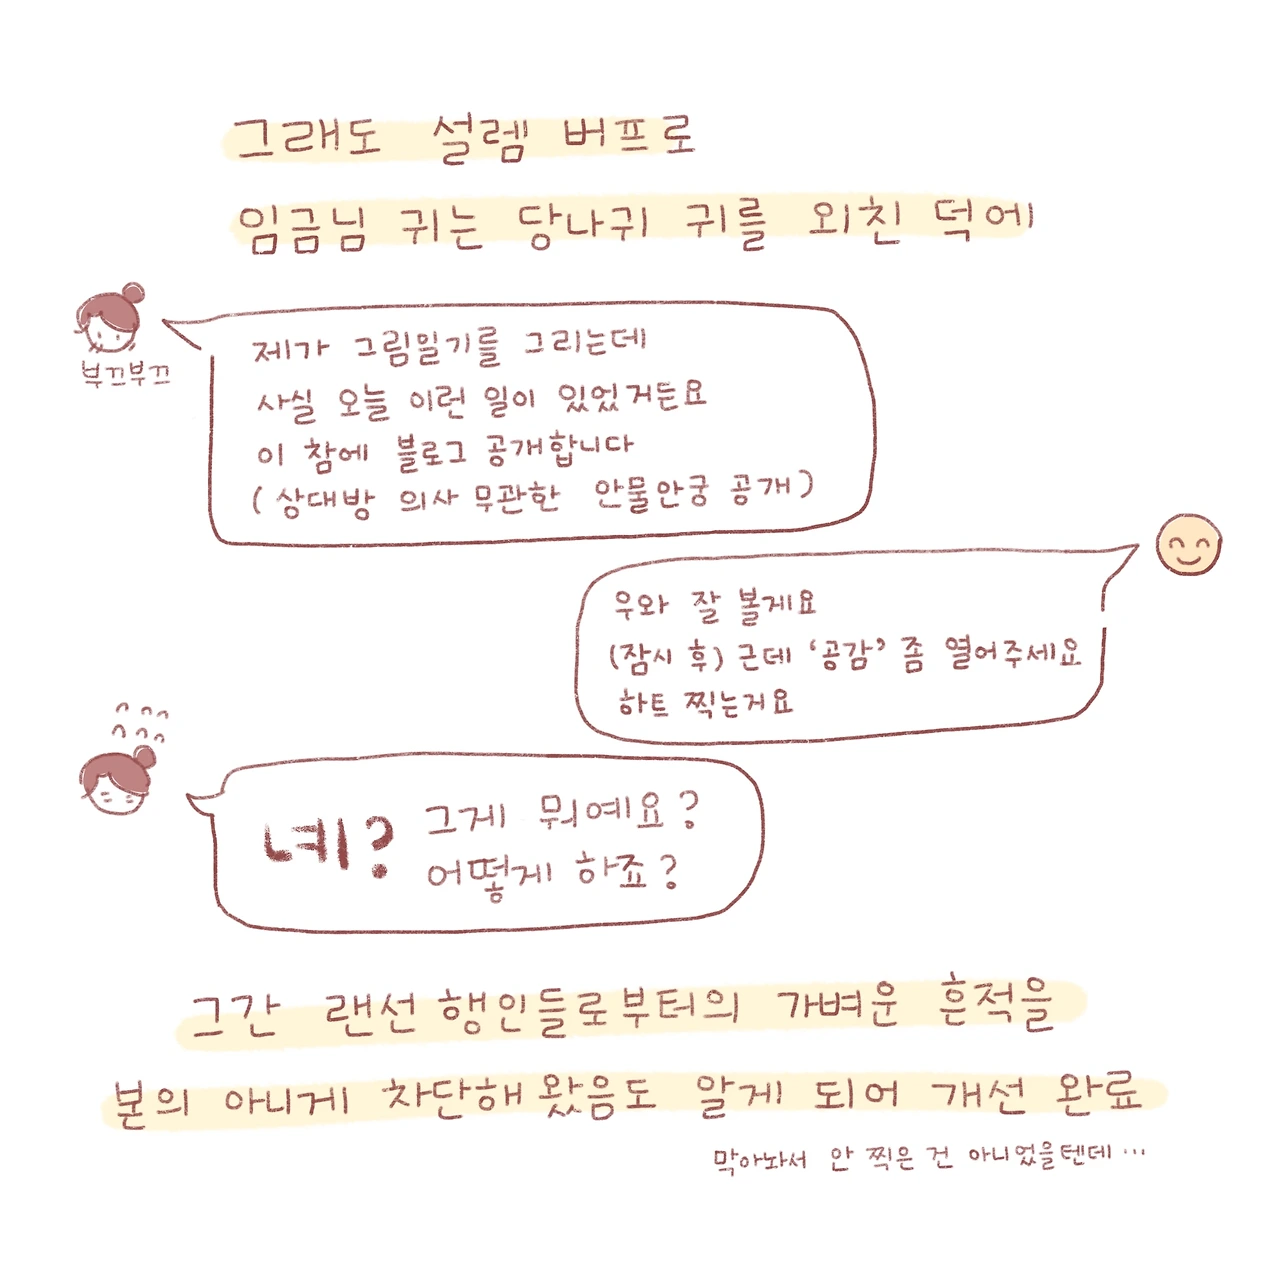 그래도 설렘 버프로
임금님 귀는 당나귀 귀를 외친 덕에
부끄부끄
제가 그림일기를 그리는데
사실 오늘 이런 일이 있었거든요
이 참에 블로그 공개합니다
(상대방 의사 무관한 안물안궁 공개)
우와 잘 볼게요
(잠시 후) 근데 ‘공감’ 좀 열어주세요
하트 찍는거요
녜? 그게 뭐예요?
어떻게 하죠?
그간 랜선 행인들로부터의 가벼운 흔적을
본의 아니게 차단해 왔음도 알게 되어 개선 완료
막아놔서 안 찍은 건 아니었을텐데 ...